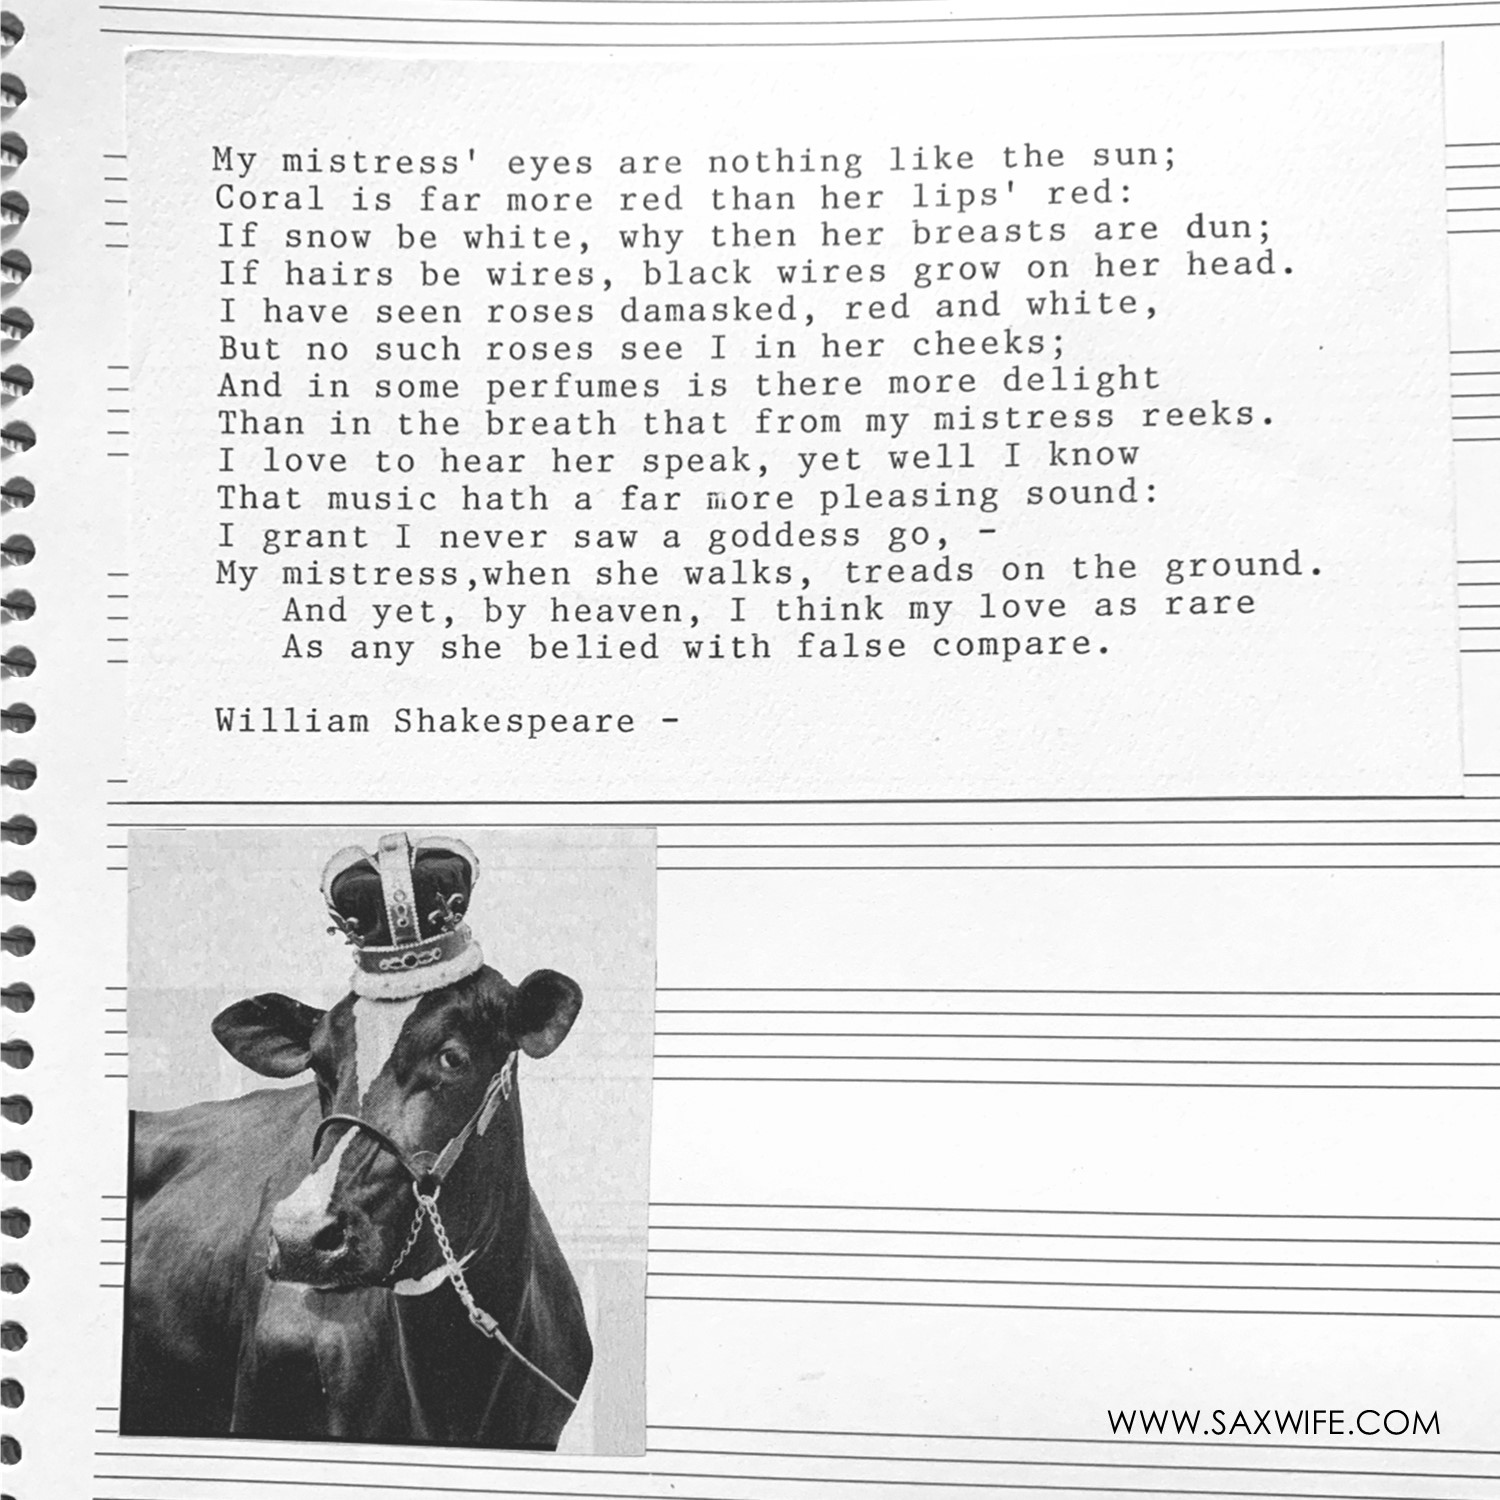 My mistress' eyes are nothing like the sun;
Coral is far more red than her lips' red:
If snow be white, why then her breasts are dun;
If hairs be wires, black wires grow on her head.
I have seen roses damasked, red and white,
But no such roses see I in her cheeks;
And in some perfumes is there more delight
Than in the breath that from my mistress reeks.
I love to hear her speak, yet well I know
That music hath a far more pleasing sound:
I grant I never saw a goddess go, -
My mistress,when she walks, treads on the ground.
And yet, by heaven, I think my love as rare
As any she belied with false compare.
William Shakespeare -
WWW.SAXWIFE.COM